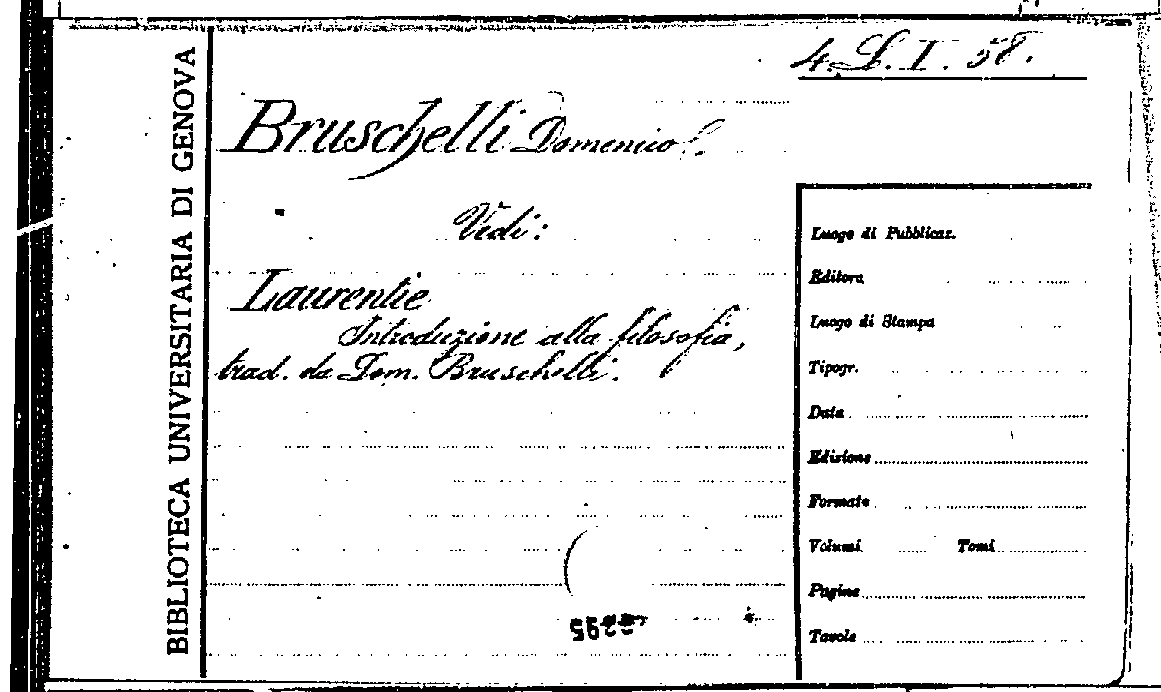 4. L. I. 58.
BIBLIOTECA UNIVERSITARIA DI GENOVA
Bruschelli Domenico
Vedi:
Laurentie
Introduzione alla filosofia,
trad. da Dom. Bruschelli.
Luogo di Pubblicaz.
Editore
Luogo di Stampa
Tipogr.
Data
Edizione
Formato
Volumi Tomi
Pagine
Tavole